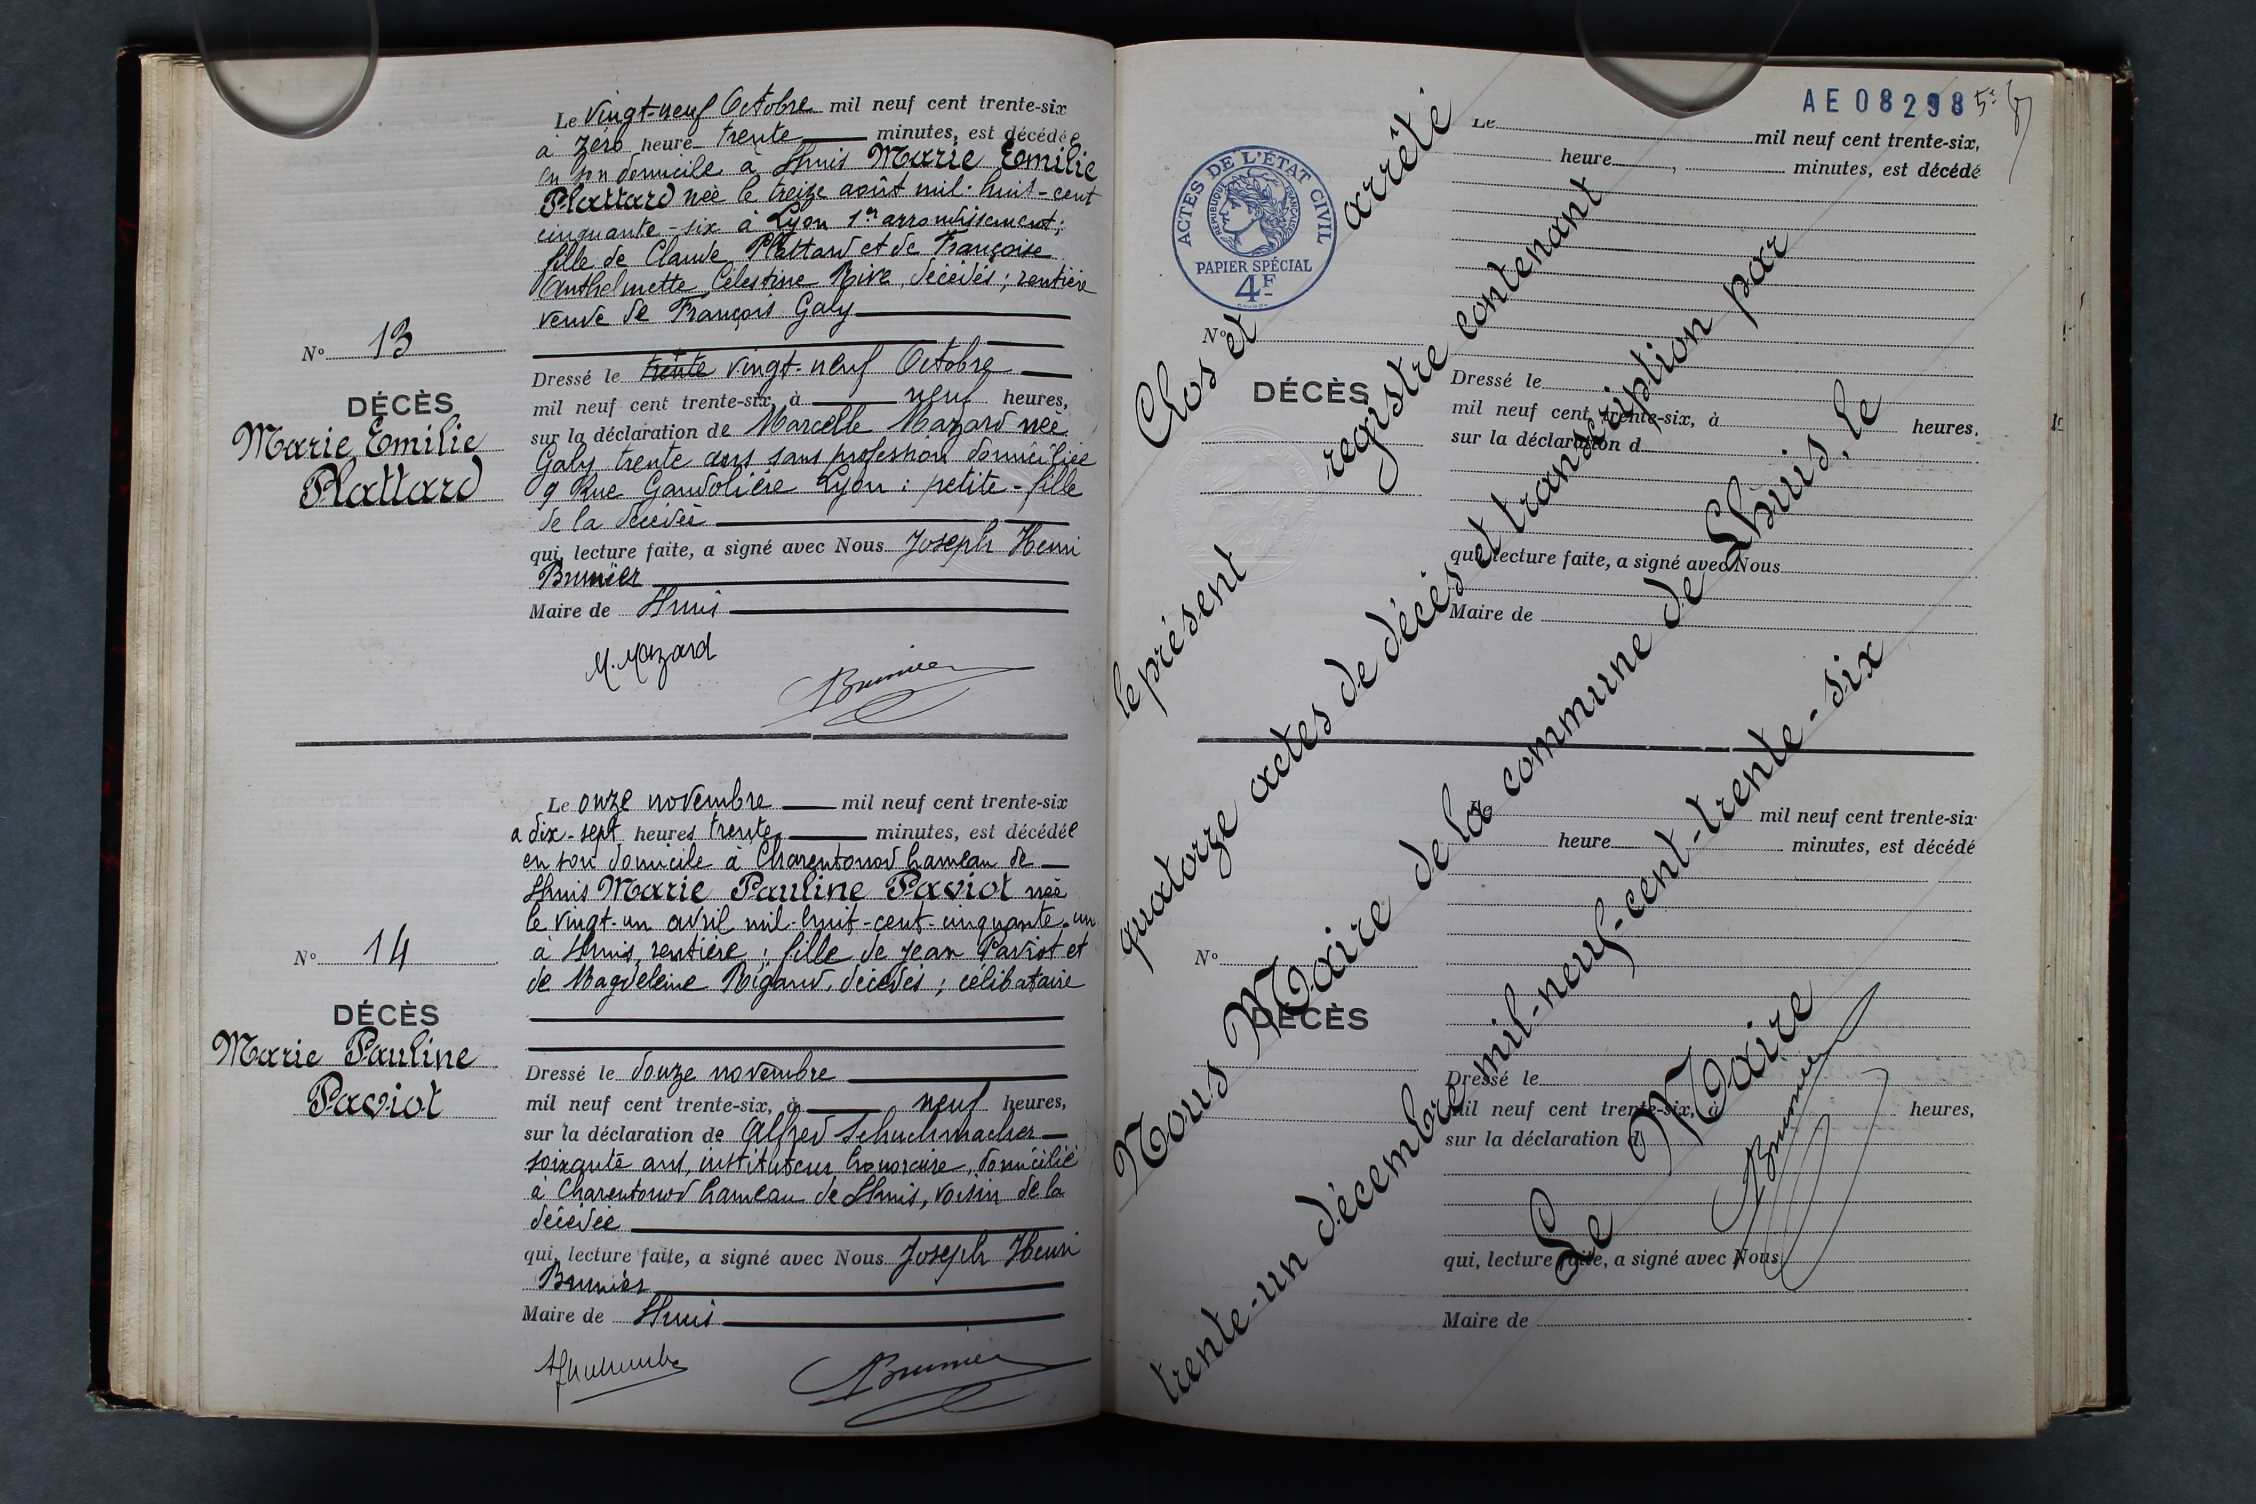 Le vingt-neuf Octobre mil neuf cent trente-six
à zéro heure trente minutes, est décédée
en son domicile à Lhuis Marie Emilie
Plattard née le treize août mil-huit-cent
cinquante-six à Lyon 1er arrondissement;
fille de Claude Plattard et de Françoise
Anthelmette Célestine Rive, décédés; rentière
veuve de François Galy
N° 13
DÉCÈS
Marie Emilie
Plattard
Dressé le trente vingt-neuf Octobre
mil neuf cent trente-six, à neuf heures,
sur la déclaration de Marcelle Mazard née
Galy trente ans sans profession domiciliée
9 Rue Gandolière Lyon: petite-fille
de la décédée
qui, lecture faite, a signé avec Nous Joseph Henri
Brunier
Maire de Lhuis
M. Mazard
Brunier
Le onze novembre mil neuf cent trente-six
a dix-sept heures trente minutes, est décédée
en son domicile à Charentonod hameau de
Lhuis Marie Pauline Paviot née
le vingt-un avril mil-huit-cent-cinquante-un
à Lhuis, rentière; fille de Jean Paviot et
de Magdeleine Rigaud, décédés; célibataire
N° 14
DÉCÈS
Marie Pauline
Paviot
Dressé le douze novembre
mil neuf cent trente-six, à neuf heures,
sur la déclaration de Alfred Schuchmacher
soixante ans, instituteur honoraire, domicilié
à Charentonod hameau de Lhuis, voisin de la
décédée
qui, lecture faite, a signé avec Nous Joseph Henri
Brunier
Maire de Lhuis
Brunier
AE 08298
ACTES DE L'ÉTAT CIVIL
RÉPUBLIQUE FRANÇAISE
PAPIER SPÉCIAL
4F
Le mil neuf cent trente-six,
heure, minutes, est décédé
N°
DÉCÈS
Dressé le
mil neuf cent trente-six, à heures,
sur la déclaration d
qui, lecture faite, a signé avec Nous
Maire de
Le mil neuf cent trente-six
heure minutes, est décédé
N°
DÉCÈS
Dressé le
mil neuf cent trente-six, à heures,
sur la déclaration d
qui, lecture faite, a signé avec Nous
Maire de
Clos et arrêté
le présent registre contenant
quatorze actes de décès et transcription par
Nous Maire de la commune de Lhuis, le
trente-un décembre mil-neuf-cent-trente-six
Le Maire
Brunier